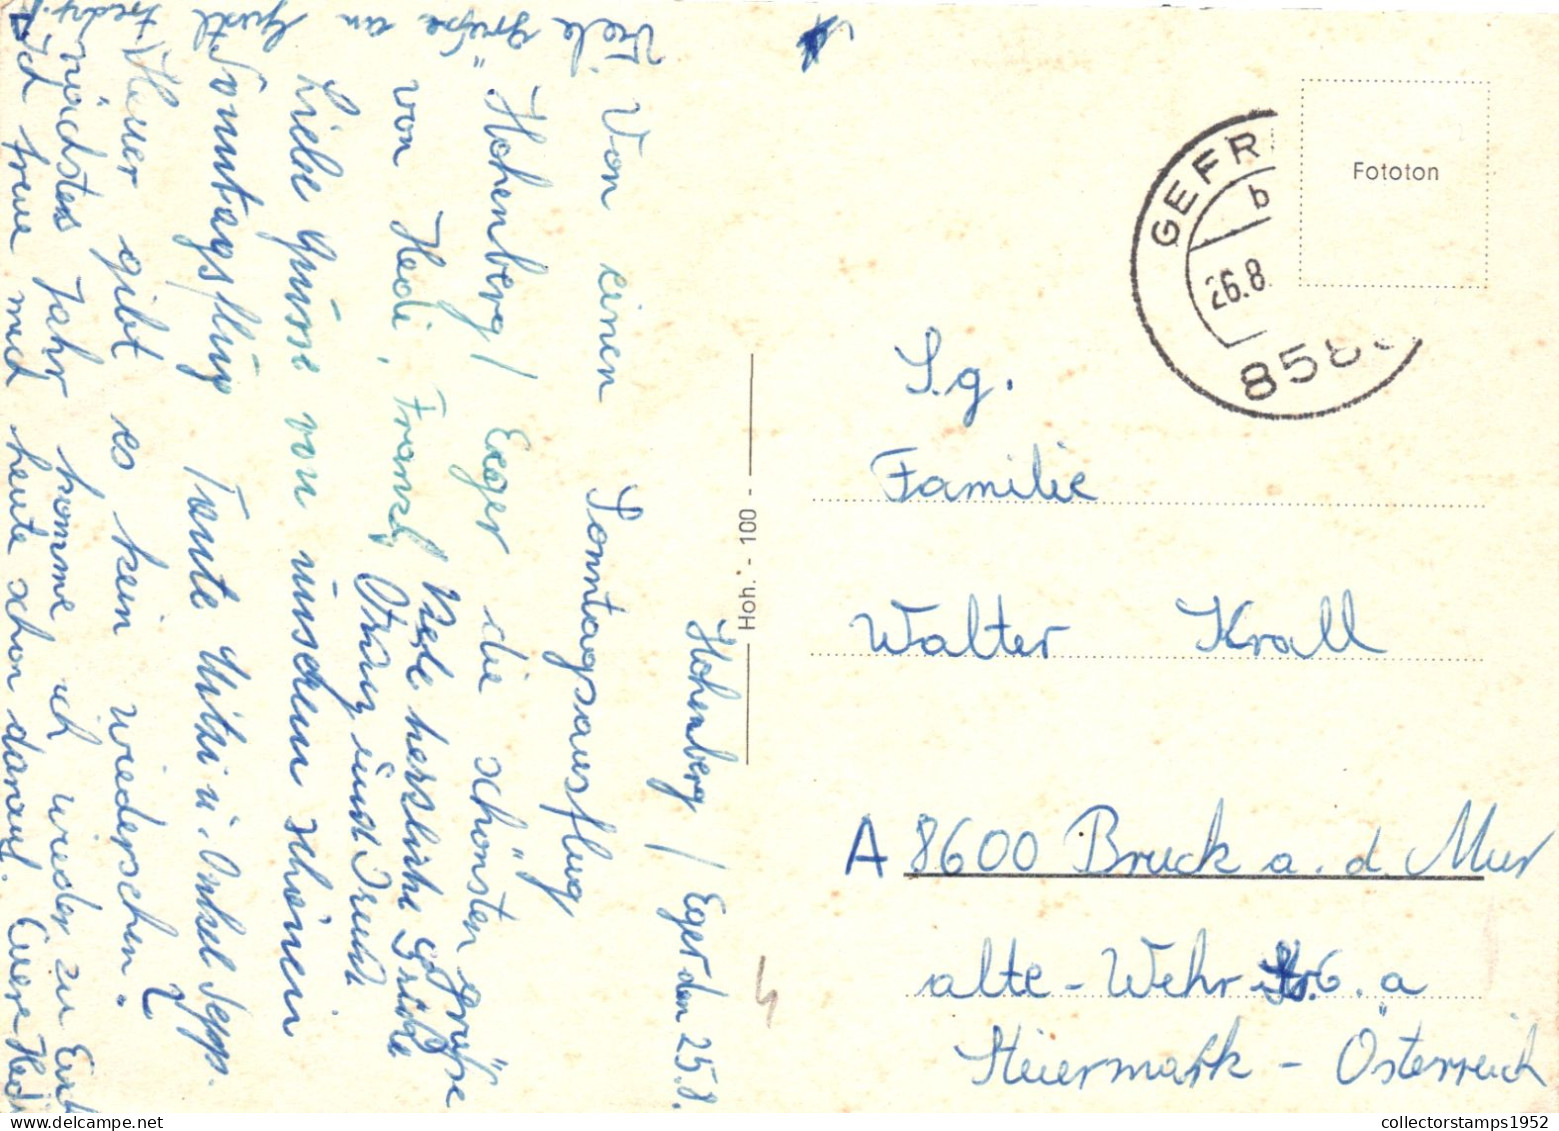 Hohenberg / Eger den 25.8.
Von einen Sonntagsausflug
Hohenberg / Eger die schönsten Grüße
von Hedi, Franzl,
Viele herzliche Grüße
Liebe Grüsse von unschem schönen
Sonntagsflug Tante Mitzi u. Onkel Sepp.
Heuer gibt es kein wiedersehen.
nächstes Jahr komme ich wieder zu Euch
Ich freue mich heute schon darauf. Euere Hedi
Viele Grüße an Gustl
Hoh. - 100 -
Fototon
GEFR
b
26.8
858
S.g.
Familie
Walter Krall
A 8600 Bruck a. d Mur
alte - Wehr Str. 6. a
Steiermark - Österreich
collectorstamps1952